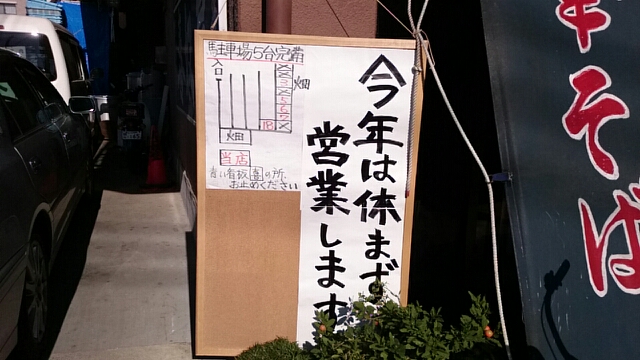 駐車場5台完備
入口
畑
18
畑
当店
青い看板喜の所、
お止めください
今年は休まず
営業します
そば